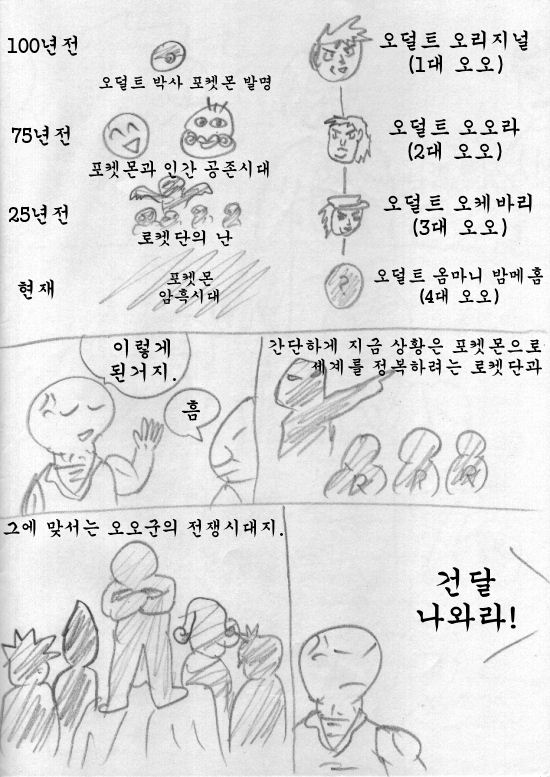 100년전
오덜트 박사 포켓몬 발명
오덜트 오리지널
(1대 오오)
75년전
포켓몬과 인간 공존시대
오덜트 오오라
(2대 오오)
25년전
로켓단의 난
오덜트 오케바리
(3대 오오)
현재
포켓몬
암흑시대
?
오덜트 옴마니 밤메홈
(4대 오오)
이렇게
된거지.
흠
간단하게 지금 상황은 포켓몬으로
세계를 정복하려는 로켓단과
R R R
그에 맞서는 오오군의 전쟁시대지.
건달
나와라!